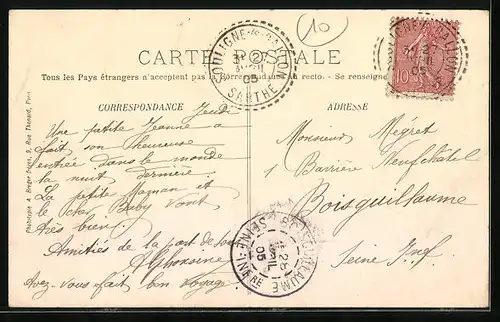 10
CARTE POSTALE
Tous les Pays étrangers n'acceptent pas la Correspondance au recto. - Se renseigne
SOULIGNE-S-BALLON
27
05
SARTHE
SOULIGNE-S-BALLON
27
05
10
CORRESPONDANCE
Jeudi
Une petite Jeanne a
fait son heureuse
entrée dans le monde
la nuit dernière.
La petite Maman et
le cher Baby vont
très bien.
Amitiés de la part de tous
Avez-vous fait bon voyage
ADRESSE
Monsieur Mégret
1 Barrière Neufchâtel
Boisguillaume
Seine Infre
BOISGUILLAUME
28
05
SEINE-INFRE